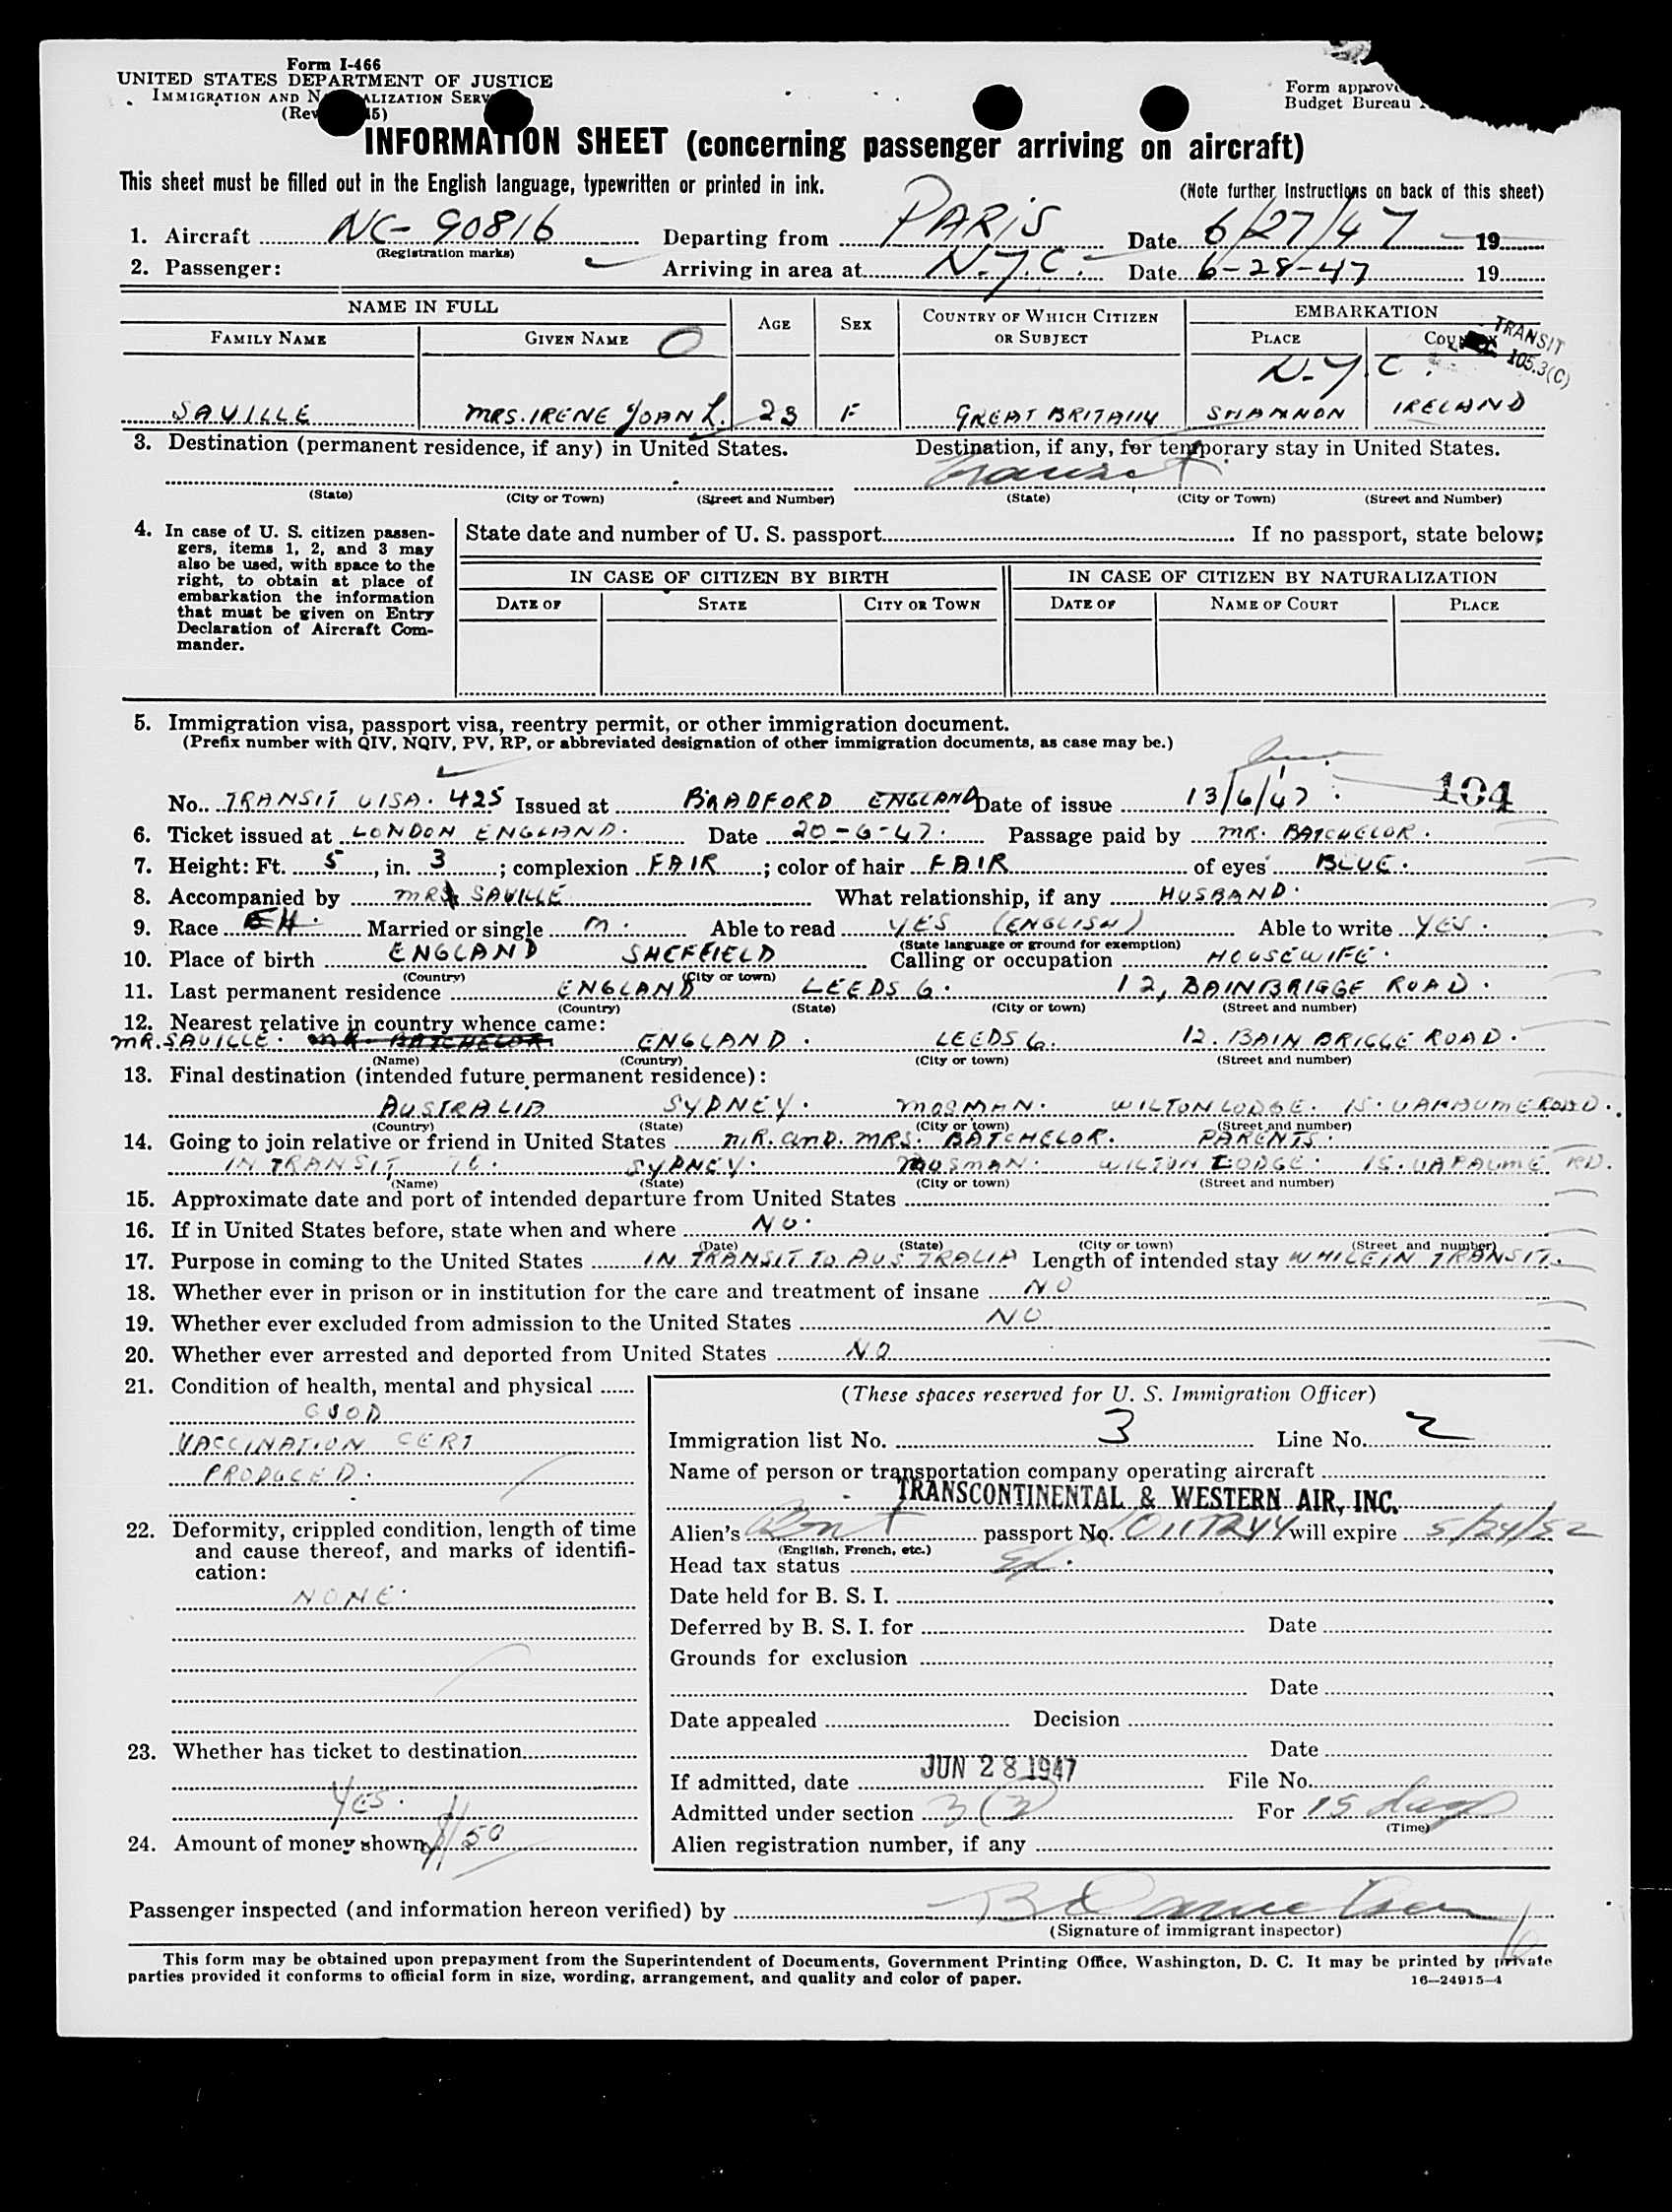 Form I-466
UNITED STATES DEPARTMENT OF JUSTICE
IMMIGRATION AND NATURALIZATION SERV
(Rev 45)
Form approv
Budget Bureau
INFORMATION SHEET (concerning passenger arriving on aircraft)
This sheet must be filled out in the English language, typewritten or printed in ink. (Note further instructions on back of this sheet)
1. Aircraft NC-90816 Departing from PARIS Date 6/27/47 19
(Registration marks)
2. Passenger: Arriving in area at N.Y.C. Date 6-28-47 19
NAME IN FULL AGE SEX COUNTRY OF WHICH CITIZEN OR SUBJECT EMBARKATION
FAMILY NAME GIVEN NAME PLACE
TRANSIT
105.3(C)
N.Y.C.
SAVILLE MRS. IRENE JOAN L. 23 F GREAT BRITAIN SHANNON IRELAND
3. Destination (permanent residence, if any) in United States. Destination, if any, for temporary stay in United States.
Transit
(State) (City or Town) (Street and Number) (State) (City or Town) (Street and Number)
4. In case of U. S. citizen passen-
gers, items 1, 2, and 3 may
also be used, with space to the
right, to obtain at place of
embarkation the information
that must be given on Entry
Declaration of Aircraft Com-
mander.
State date and number of U. S. passport If no passport, state below:
IN CASE OF CITIZEN BY BIRTH IN CASE OF CITIZEN BY NATURALIZATION
DATE OF STATE CITY OR TOWN DATE OF NAME OF COURT PLACE
5. Immigration visa, passport visa, reentry permit, or other immigration document.
(Prefix number with QIV, NQIV, PV, RP, or abbreviated designation of other immigration documents, as case may be.)
104
No. TRANSIT VISA. 425 Issued at BRADFORD ENGLAND Date of issue 13/6/47.
6. Ticket issued at LONDON ENGLAND. Date 20-6-47. Passage paid by MR. BATCHELOR.
7. Height: Ft. 5, in. 3; complexion FAIR; color of hair FAIR of eyes BLUE.
8. Accompanied by MR SAVILLE What relationship, if any HUSBAND.
9. Race EH. Married or single M. Able to read YES (ENGLISH) Able to write YES.
(State language or ground for exemption)
10. Place of birth ENGLAND SHEFFIELD Calling or occupation HOUSEWIFE.
(Country) (City or town)
11. Last permanent residence ENGLAND LEEDS 6. 12, BAINBRIGGE ROAD.
(Country) (State) (City or town) (Street and number)
12. Nearest relative in country whence came:
MR. SAVILLE. MR. BATCHELOR. ENGLAND. LEEDS 6. 12. BAINBRIGGE ROAD.
(Name) (Country) (City or town) (Street and number)
13. Final destination (intended future permanent residence):
AUSTRALIA SYDNEY. MOSMAN. WILTON LODGE. 15. ROAD.
(Country) (State) (City or town) (Street and number)
14. Going to join relative or friend in United States MR. and MRS. BATCHELOR. PARENTS.
IN TRANSIT TO. SYDNEY. MOSMAN. WILTON LODGE. 15. RD.
(Name) (State) (City or town) (Street and number)
15. Approximate date and port of intended departure from United States
16. If in United States before, state when and where NO.
(Date) (State) (City or town) (Street and number)
17. Purpose in coming to the United States IN TRANSIT TO AUSTRALIA Length of intended stay WHILE IN TRANSIT.
18. Whether ever in prison or in institution for the care and treatment of insane NO
19. Whether ever excluded from admission to the United States NO
20. Whether ever arrested and deported from United States NO
21. Condition of health, mental and physical
GOOD
VACCINATION CERT
PRODUCED.
22. Deformity, crippled condition, length of time
and cause thereof, and marks of identifi-
cation:
NONE.
23. Whether has ticket to destination
Yes.
24. Amount of money shown $150
(These spaces reserved for U. S. Immigration Officer)
Immigration list No. 3 Line No. 2
Name of person or transportation company operating aircraft
TRANSCONTINENTAL & WESTERN AIR, INC.
Alien's Brit passport No. will expire 5/24/52
(English, French, etc.)
Head tax status Ex.
Date held for B. S. I.
Deferred by B. S. I. for Date
Grounds for exclusion
Date
Date appealed Decision
Date
If admitted, date JUN 28 1947 File No.
Admitted under section 3(3) For 15 days
(Time)
Alien registration number, if any
Passenger inspected (and information hereon verified) by
(Signature of immigrant inspector)
This form may be obtained upon prepayment from the Superintendent of Documents, Government Printing Office, Washington, D. C. It may be printed by private
parties provided it conforms to official form in size, wording, arrangement, and quality and color of paper. 16—24915-4